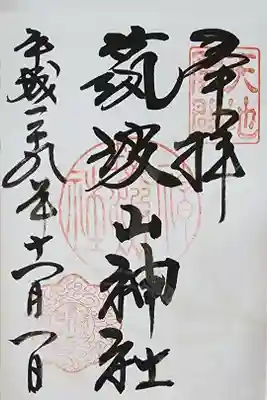 奉拝
筑波山神社
平成二十九年十一月一日